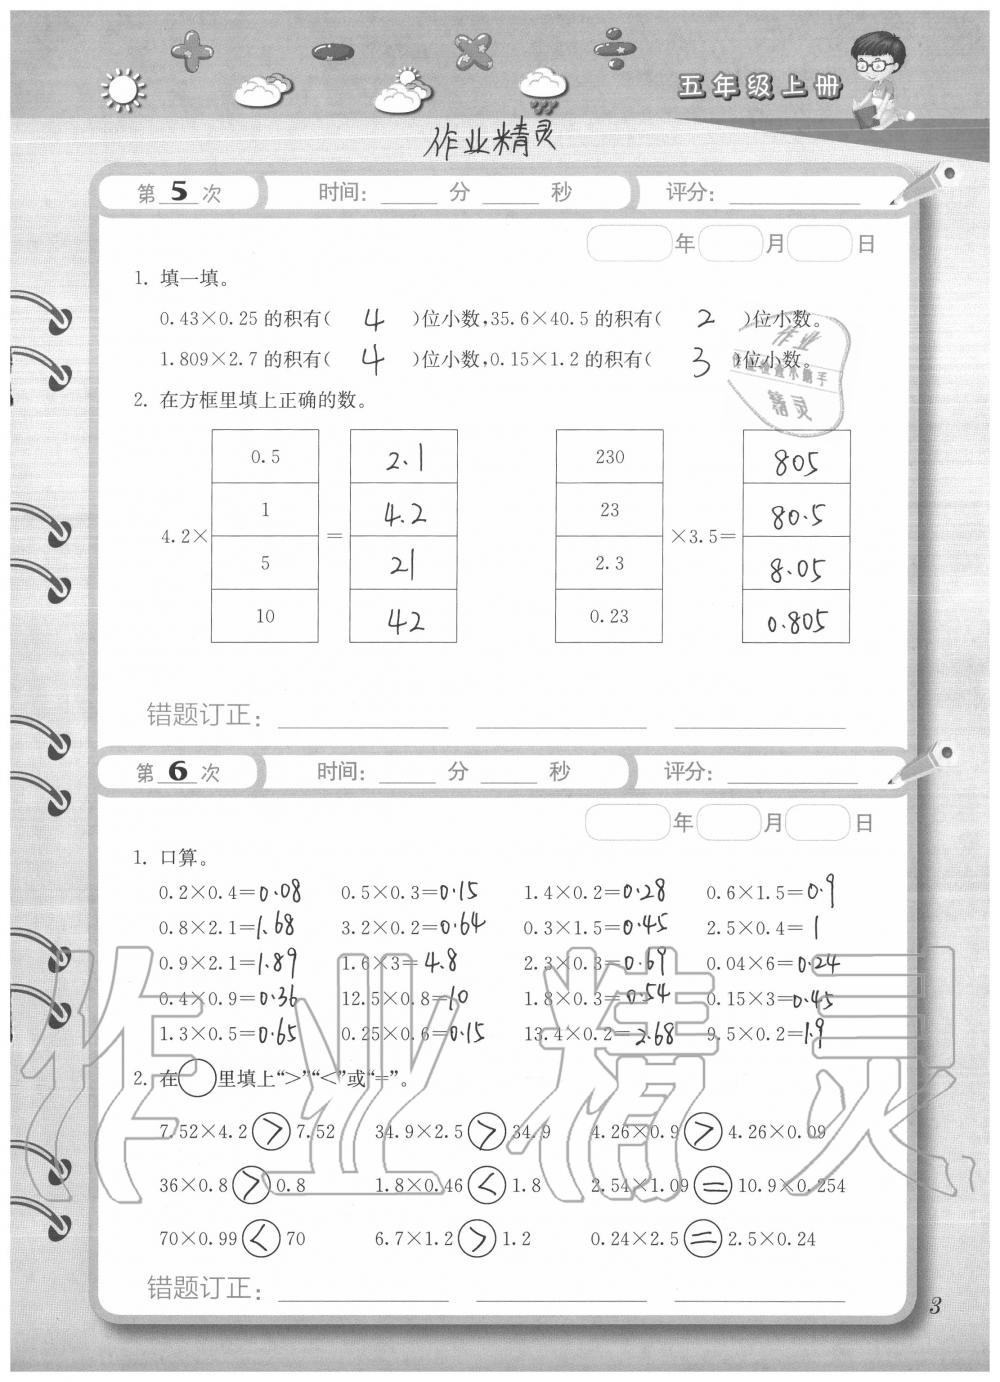 五年级上册
作业精灵
第 5 次 时间: 分 秒 评分:
年 月 日
1. 填一填。
0.43×0.25 的积有( 4 )位小数,35.6×40.5 的积有( 2 )位小数。
1.809×2.7 的积有( 4 )位小数,0.15×1.2 的积有( 3 )位小数。
作业
检查小助手
精灵
2. 在方框里填上正确的数。
0.5 2.1 230 805
1 4.2 23 80.5
4.2× = ×3.5=
5 21 2.3 8.05
10 42 0.23 0.805
错题订正:
第 6 次 时间: 分 秒 评分:
年 月 日
1. 口算。
0.2×0.4=0.08 0.5×0.3=0.15 1.4×0.2=0.28 0.6×1.5=0.9
0.8×2.1=1.68 3.2×0.2=0.64 0.3×1.5=0.45 2.5×0.4=1
0.9×2.1=1.89 1.6×3=4.8 2.3×0.3=0.69 0.04×6=0.24
0.4×0.9=0.36 12.5×0.8=10 1.8×0.3=0.54 0.15×3=0.45
1.3×0.5=0.65 0.25×0.6=0.15 13.4×0.2=2.68 9.5×0.2=1.9
作业精灵
2. 在○里填上“>”“<”或“=”。
7.52×4.2 > 7.52 34.9×2.5 > 34.9 4.26×0.9 > 4.26×0.09
36×0.8 > 0.8 1.8×0.46 < 1.8 2.54×1.09 = 10.9×0.254
70×0.99 < 70 6.7×1.2 > 1.2 0.24×2.5 = 2.5×0.24
错题订正:
3